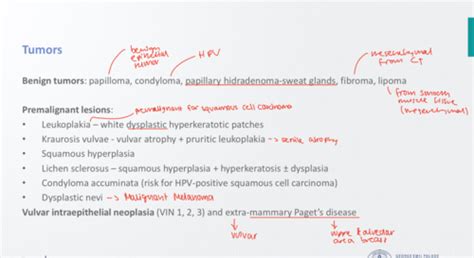 Tumors
benign epithelial tumor
HPV
mesenchymal from CT
Benign tumors: papilloma, condyloma, papillary hidradenoma-sweat glands, fibroma, lipoma
from smooth muscle tissue (mesenchymal)
Premalignant lesions:
premalignant for squamous cell carcinoma
• Leukoplakia – white dysplastic hyperkeratotic patches
• Kraurosis vulvae - vulvar atrophy + pruritic leukoplakia -> senile atrophy
• Squamous hyperplasia
• Lichen sclerosus – squamous hyperplasia + hyperkeratosis ± dysplasia
• Condyloma accuminata (risk for HPV-positive squamous cell carcinoma)
• Dysplastic nevi -> Malignant Melanoma
Vulvar intraepithelial neoplasia (VIN 1, 2, 3) and extra-mammary Paget's disease
area breast